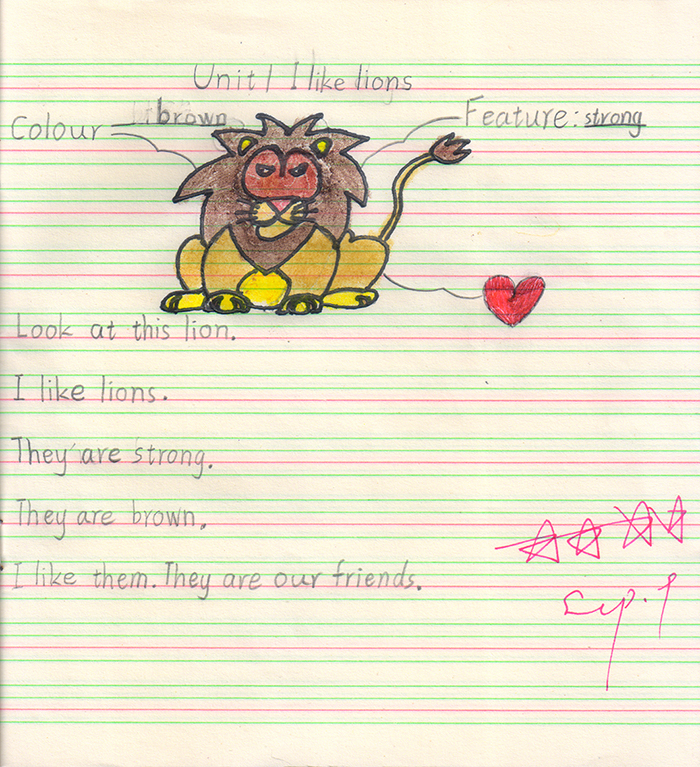 Unit 1 I like lions
Colour brown
Feature: strong
Look at this lion.
I like lions.
They are strong.
They are brown.
I like them. They are our friends.